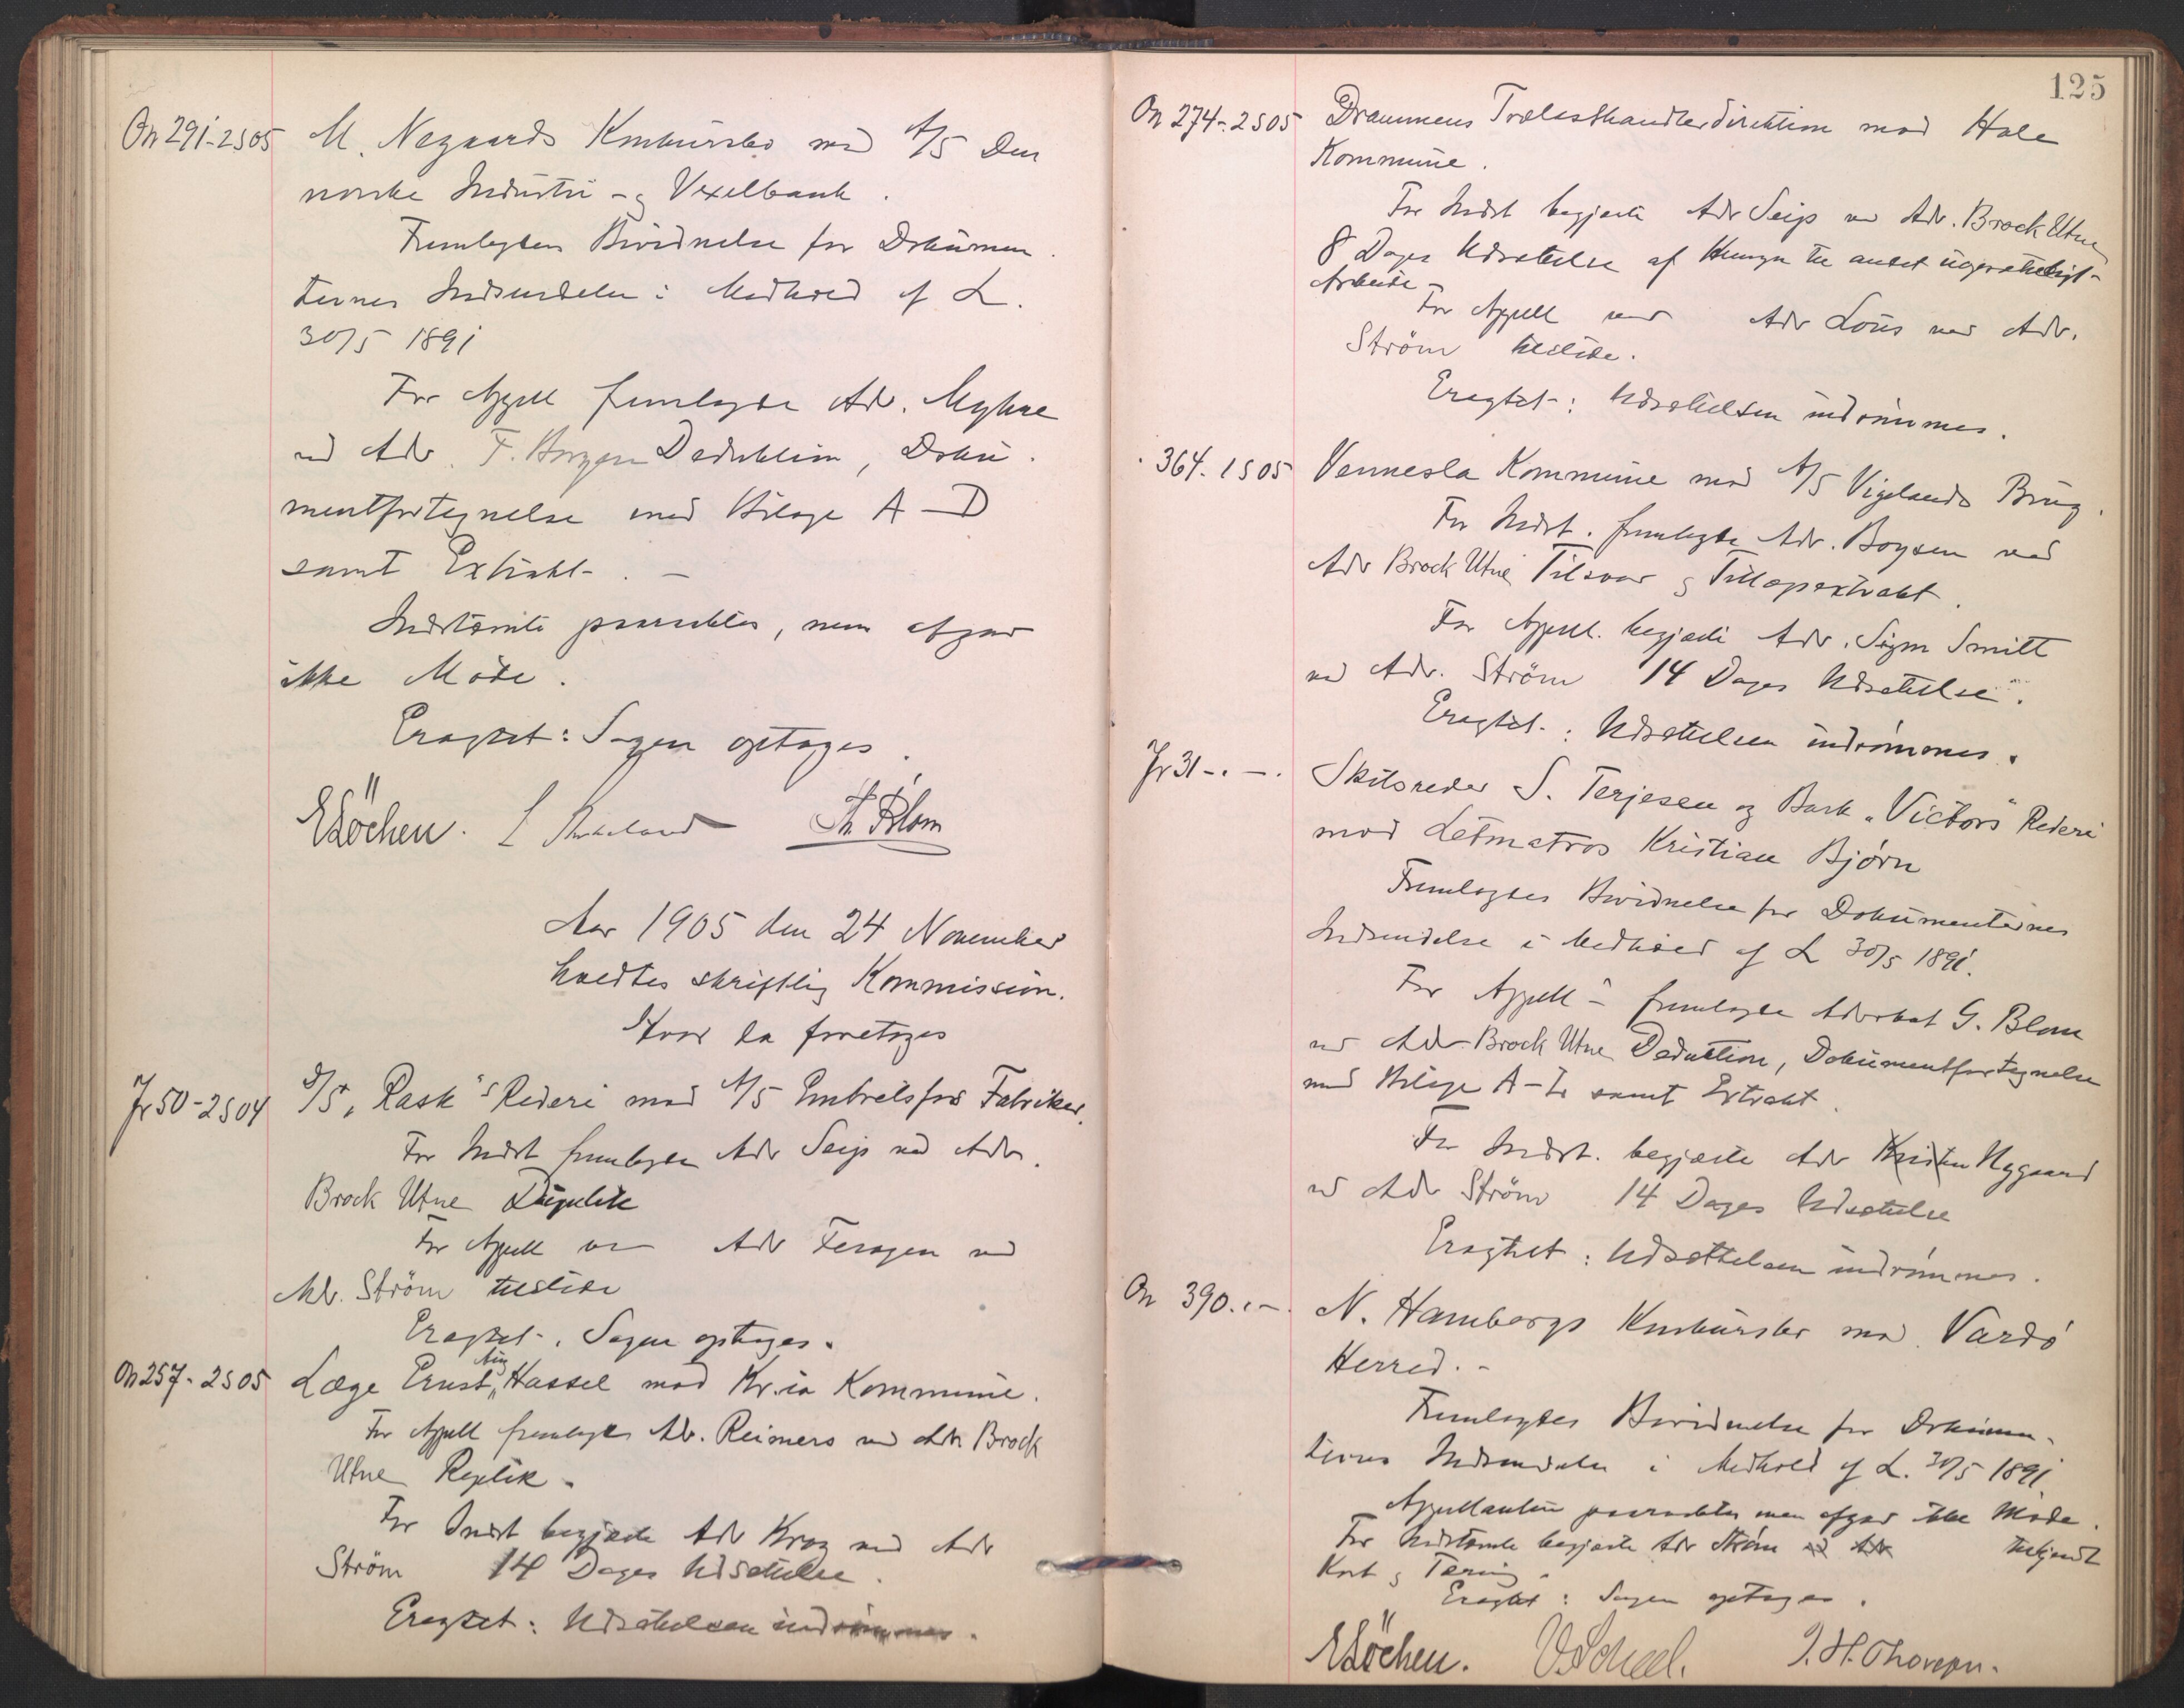 On 291-2S05 M. Nygaards Konkursbo mod A/S Den
norske Industri- og Vexelbank.
Fremlagdes Bevidnelse for Dokumen
ternes Indsendelse i Medhold af L.
30/5 1891
For Appell fremlagde Adv. Myhre
ved Adv. Deduktion, Doku
mentfortegnelse med Bilage A-D
samt Extrakt. -
Indstævnte paaraabtes, men afgav
ikke Møde.
Eragtet: Sagen optages.
E Löchen. Th Blom
Aar 1905 den 24 November
holdtes skriftlig Kommission.
Hvor da foretoges
Jr 50-2S04 D/S "Rask"s Rederi mod A/S Embretsfos Fabriker.
For Indst fremlagde Adv Seip ved Adv.
Brock Utne Duplik
For Appell var Adv ved
Adv. Ström tilstede
Eragtet. Sagen optages.
On 257-2S05 Læge Ernst Aug Hassel mod Kr.ia Kommune.
For Appell fremlagde Adv. Reimers ved Adv Brock
Utne Replik.
For Indst begjærte Adv Krag ved Adv
Ström 14 Dages Udsættelse.
Eragtet: Udsættelsen indrømmes.
125
On 274-2S05 Drammens Trælasthandlerdirektion mod Hole
Kommune.
For Indst begjærte Adv Seip ved Adv. Brock Utne
8 Dages Udsættelse af Hensyn til andet uopsætteligt
Arbeide-
For Appell var Adv Lous ved Adv.
Ström tilstede.
Eragtet: Udsættelsen indrømmes.
364. 1S05 Vennesla Kommune mod A/S Vigelands Brug.
For Indst. fremlagde Adv. Boysen ved
Adv Brock Utne Tilsvar og Tillægsextrakt.
For Appell. begjærte Adv. Sigm Smitt
ved Adv. Ström 14 Dages Udsættelse.
Eragtet.: Udsættelsen indrømmes.
Jr 31-.-. Skibsreder S. Terjesen og Bark "Victors" Rederi
mod Letmatros Kristian Bjørn
Fremlagdes Bevidnelse for Dokumenternes
Indsendelse i Medhold af L 30/5 1891.
For Appell- fremlagde Advokat G. Blom
ved Adv Brock Utne Deduktion, Dokumentfortegnelse
med Bilage A- samt Extrakt.
For Indst. begjærte Adv Kristen Nygaard
ved Adv Ström 14 Dages Udsættelse
Eragtet: Udsættelsen indrømmes.
On 390.-. N. Hambergs Konkursbo mod Vardø
Herred.-
Fremlagdes Bevidnelse for Dokumen-
ternes Indsendelse i Medhold af L. 30/5 1891.
Appellanten paaraabtes men afgav ikke Møde.
For Indstævnte begjærte Adv Strøm ved Adv tilkjendt
Kost og Tæring.
Eragtet: Sagen optages.
E Löchen. V. Scheel. J. H. Thoresen.